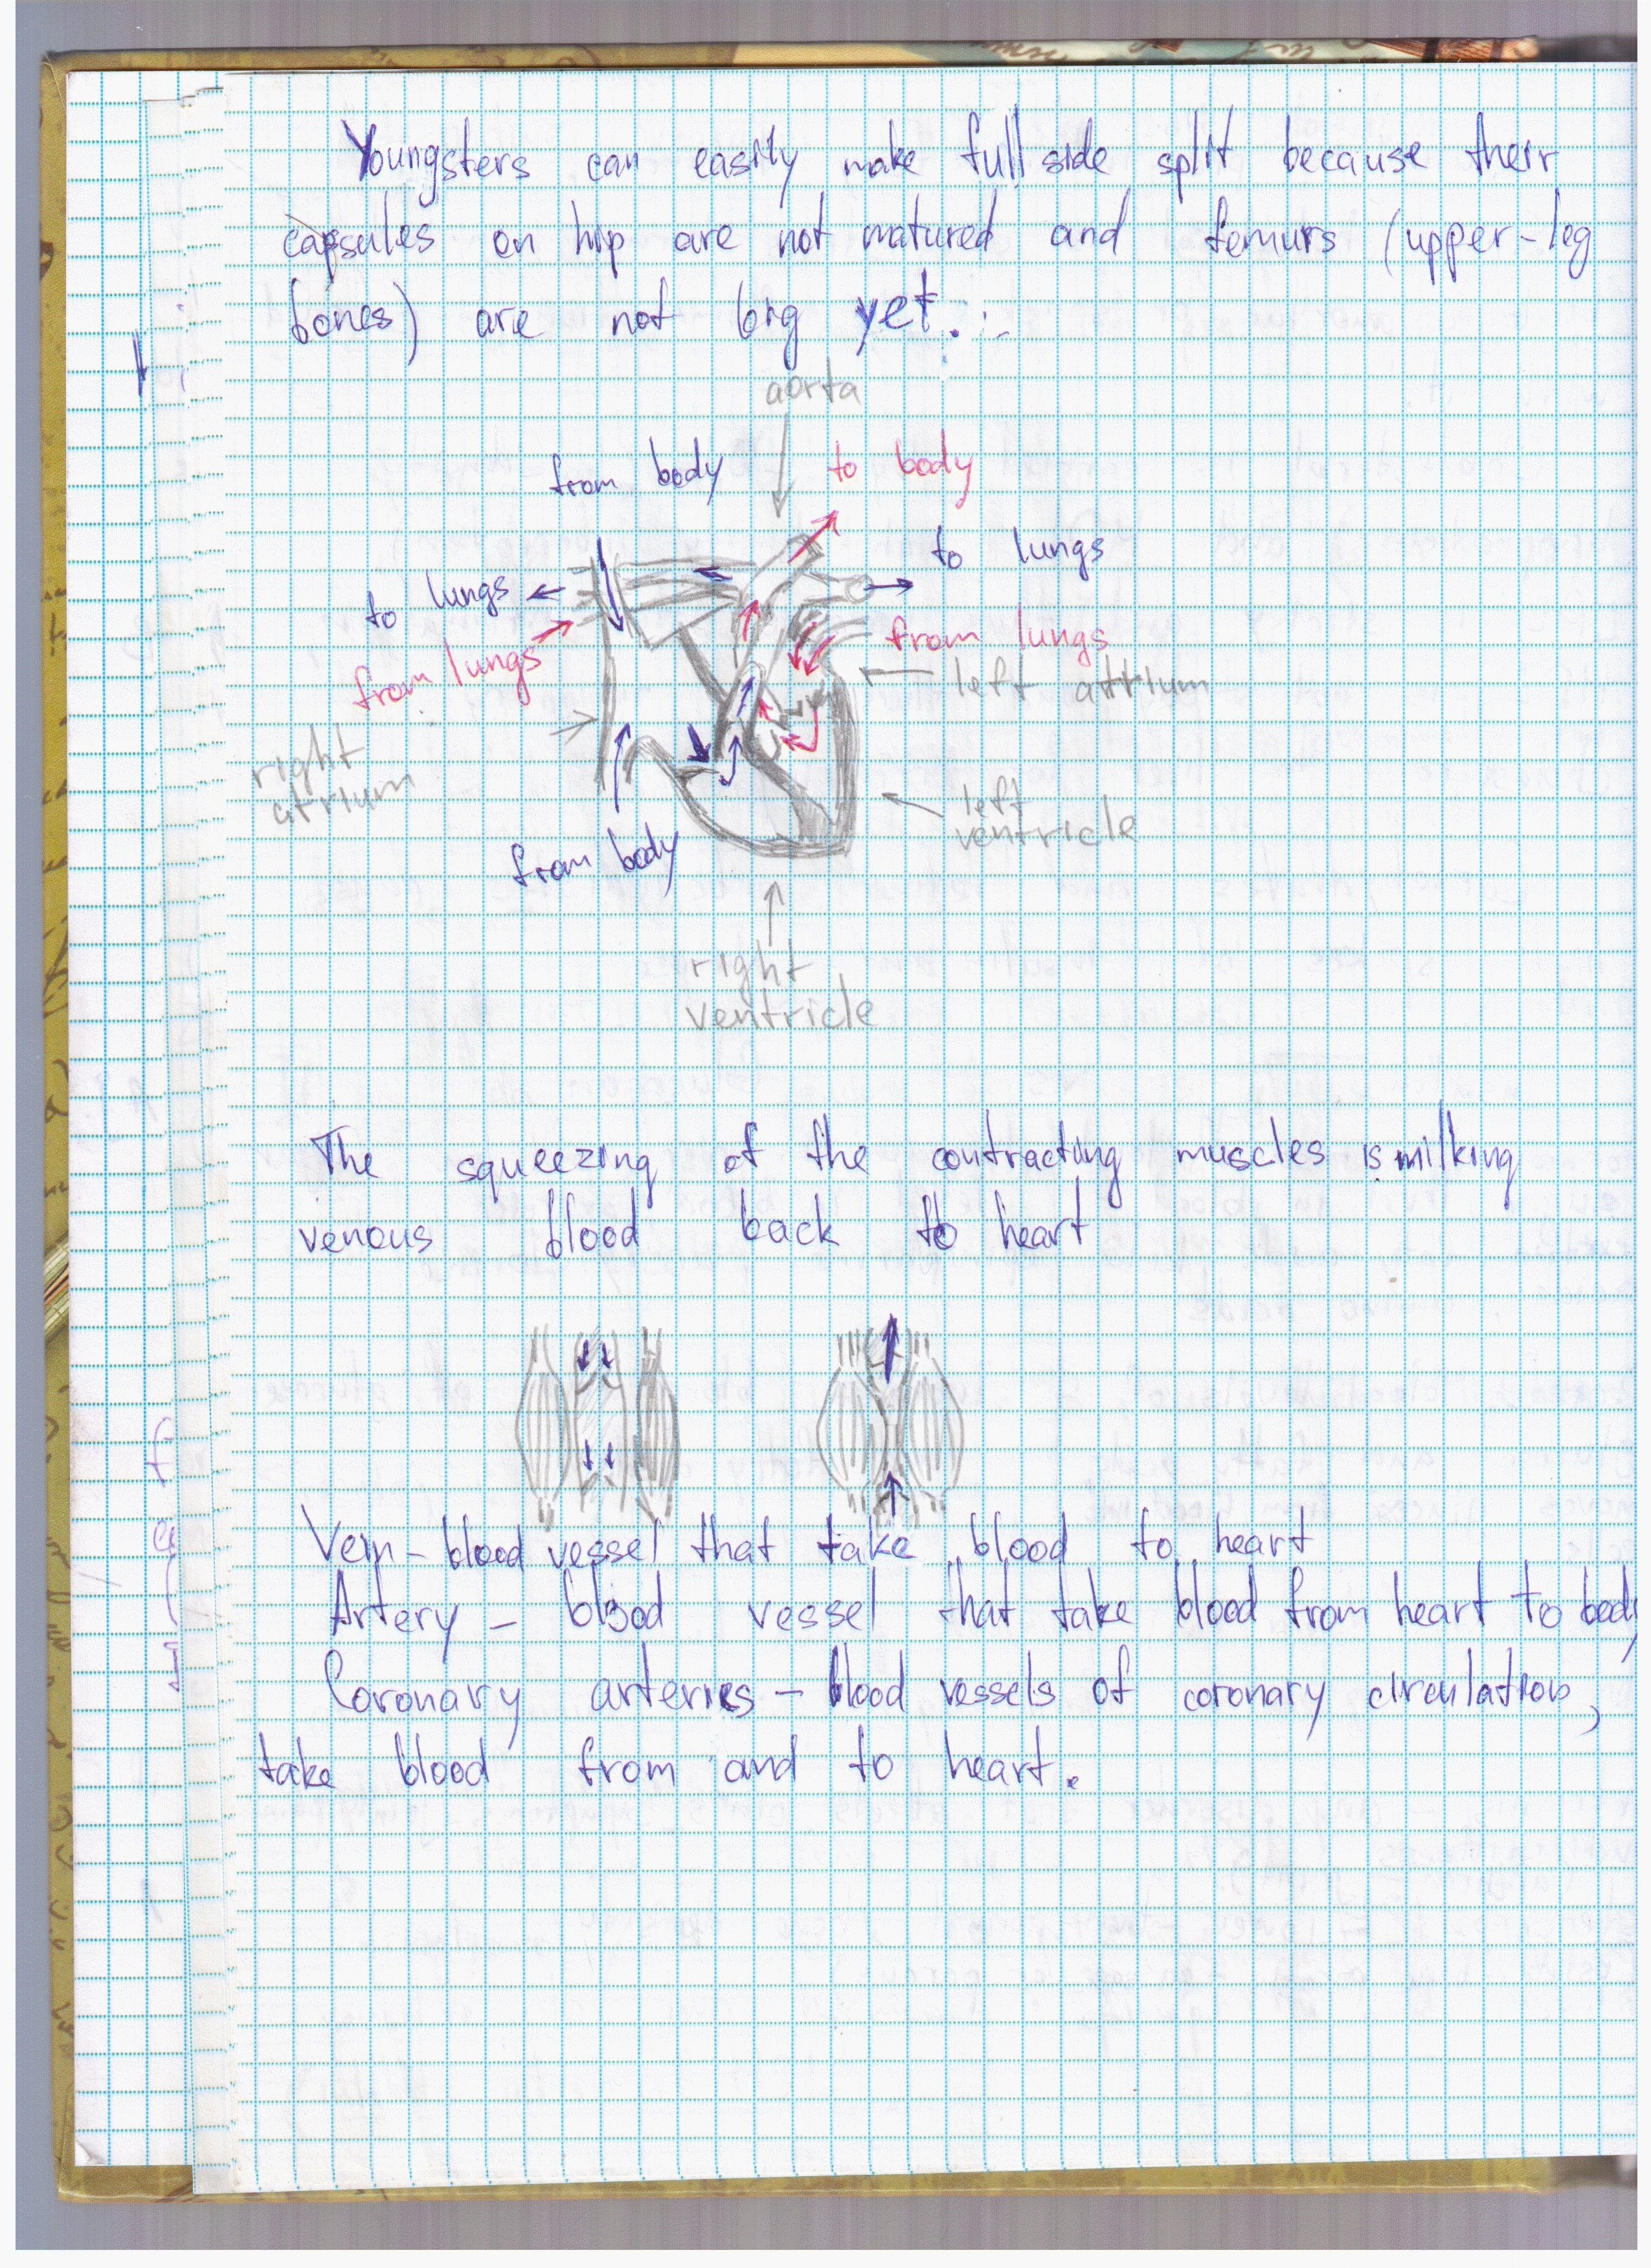 Youngsters can easily make full side split because their
capsules on hip are not matured and femurs (upper-leg
bones) are not big yet.
aorta
from body
to body
to lungs
to lungs
from lungs
from lungs
left atrium
right
atrium
left
ventricle
from body
right
ventricle
The squeezing of the contracting muscles is milking
venous blood back to heart
Vein - blood vessel that take blood to heart
Artery - blood vessel that take blood from heart to body
Coronary arteries - blood vessels of coronary circulation,
take blood from and to heart.